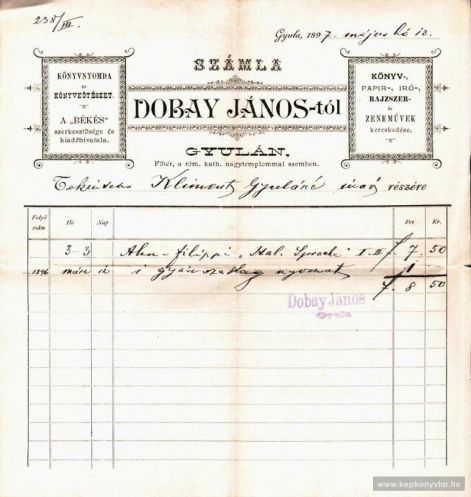 238/III.
Gyula, 1897. május hó 13.
SZÁMLA
KÖNYVNYOMDA
és
KÖNYVKÖTÉSZET.
A „BÉKÉS"
szerkesztősége és
kiadóhivatala.
DOBAY JÁNOS-tól
GYULÁN,
Főtér, a róm. kath. nagytemplommal szemben.
KÖNYV-,
PAPIR-, IRÓ-,
RAJZSZER-
és
ZENEMŰVEK
kereskedése.
Tekintetes Kliment Gyuláné úrnő részére
Folyó szám Hó Nap Frt Kr.
3-3 Ahn-Filippi Ital. Sprache I-II f. 7. 50
1896 márc 12 1 gyászszallag nyomat 1
f. 8 50
Dobay János
Gyula
www.kepkonyvtar.hu